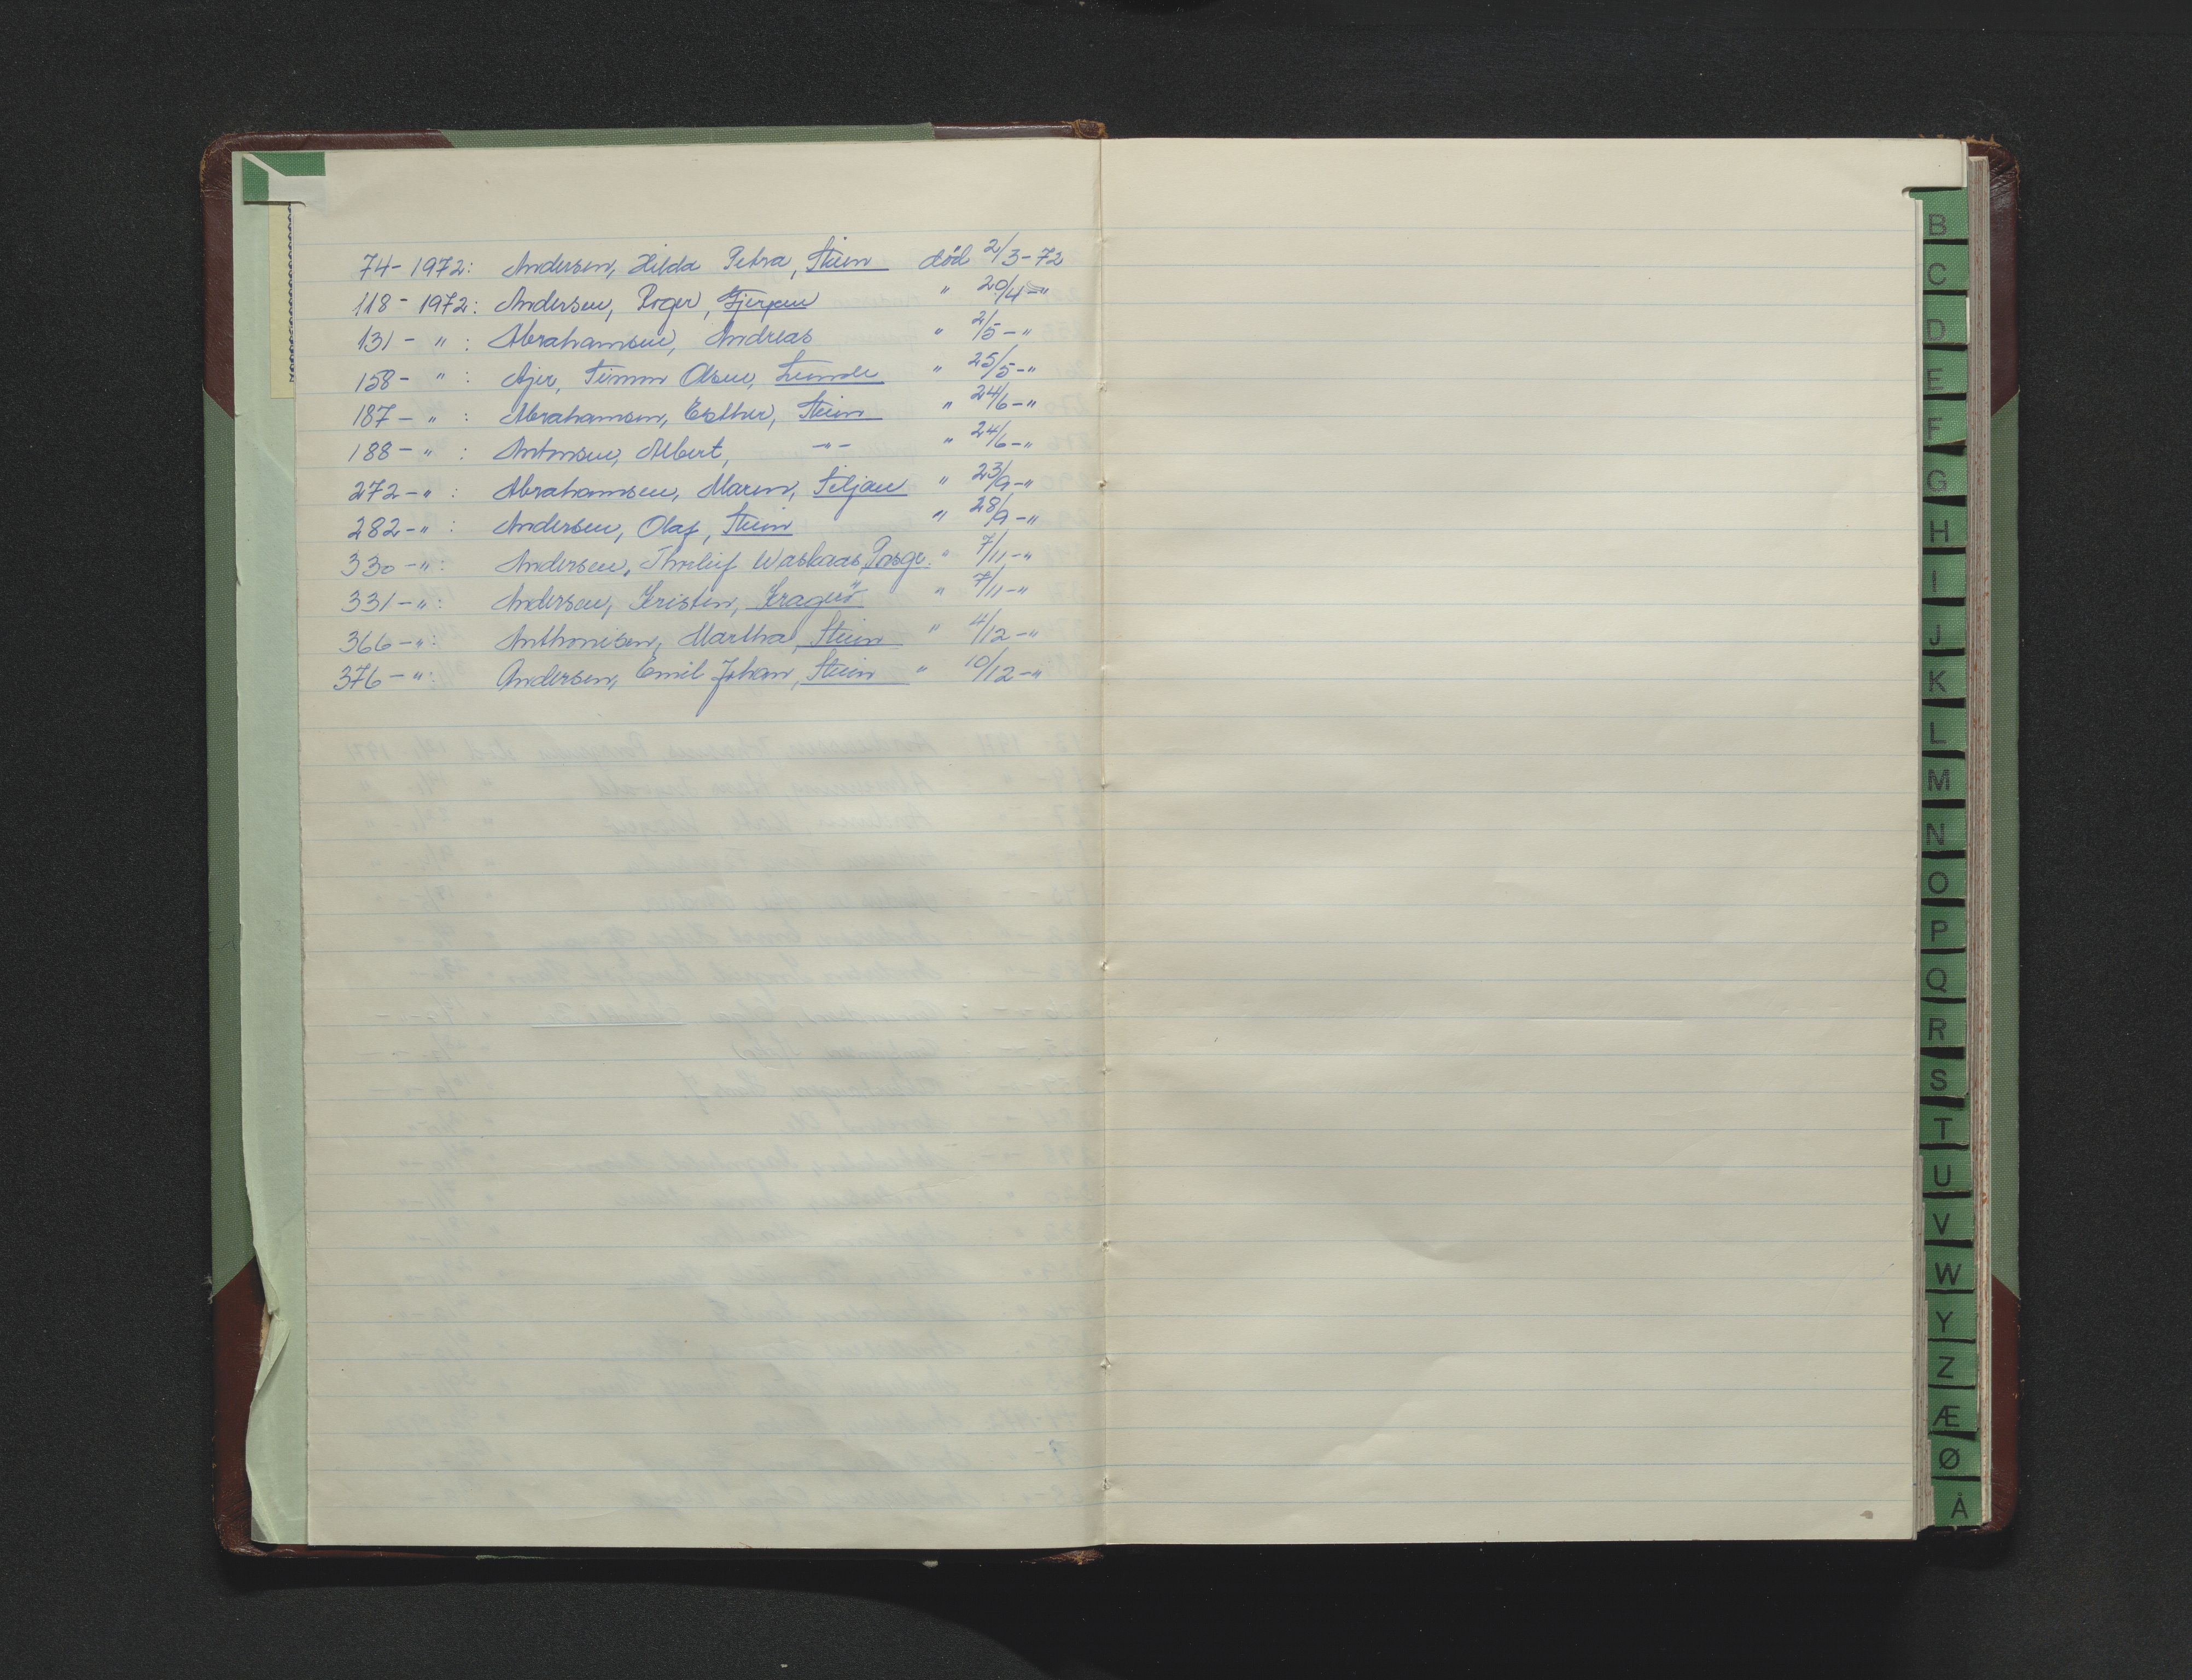 74 - 1972: Andersen, Hilda Petra, Skien død 2/3 - 72
118 - 1972: Andersen, Roger, Gjerpen " 20/4 - "
131 - " : Abrahamsen, Andreas " 2/5 - "
158 - " : Ajer, Olsen, Lunde " 25/5 - "
187 - " : Abrahamsen, Esther, Skien " 24/6 - "
188 - " : Antonsen, Albert, - " - " 24/6 - "
272 - " : Abrahamsen, Maren, Siljan " 23/9 - "
282 - " : Andersen, Olaf, Skien " 28/9 - "
330 - " : Andersen, Thorleif Porsgr. " 7/11 - "
331 - " : Andersen, Kristen, Kragerö " 7/11 - "
366 - " : Anthonisen, Martha, Skien " 4/12 - "
376 - " : Andersen, Emil Johan, Skien " 10/12 - "
B
C
D
E
F
G
H
I
J
K
L
M
N
O
P
Q
R
S
T
U
V
W
Y
Z
Æ
Ø
Å